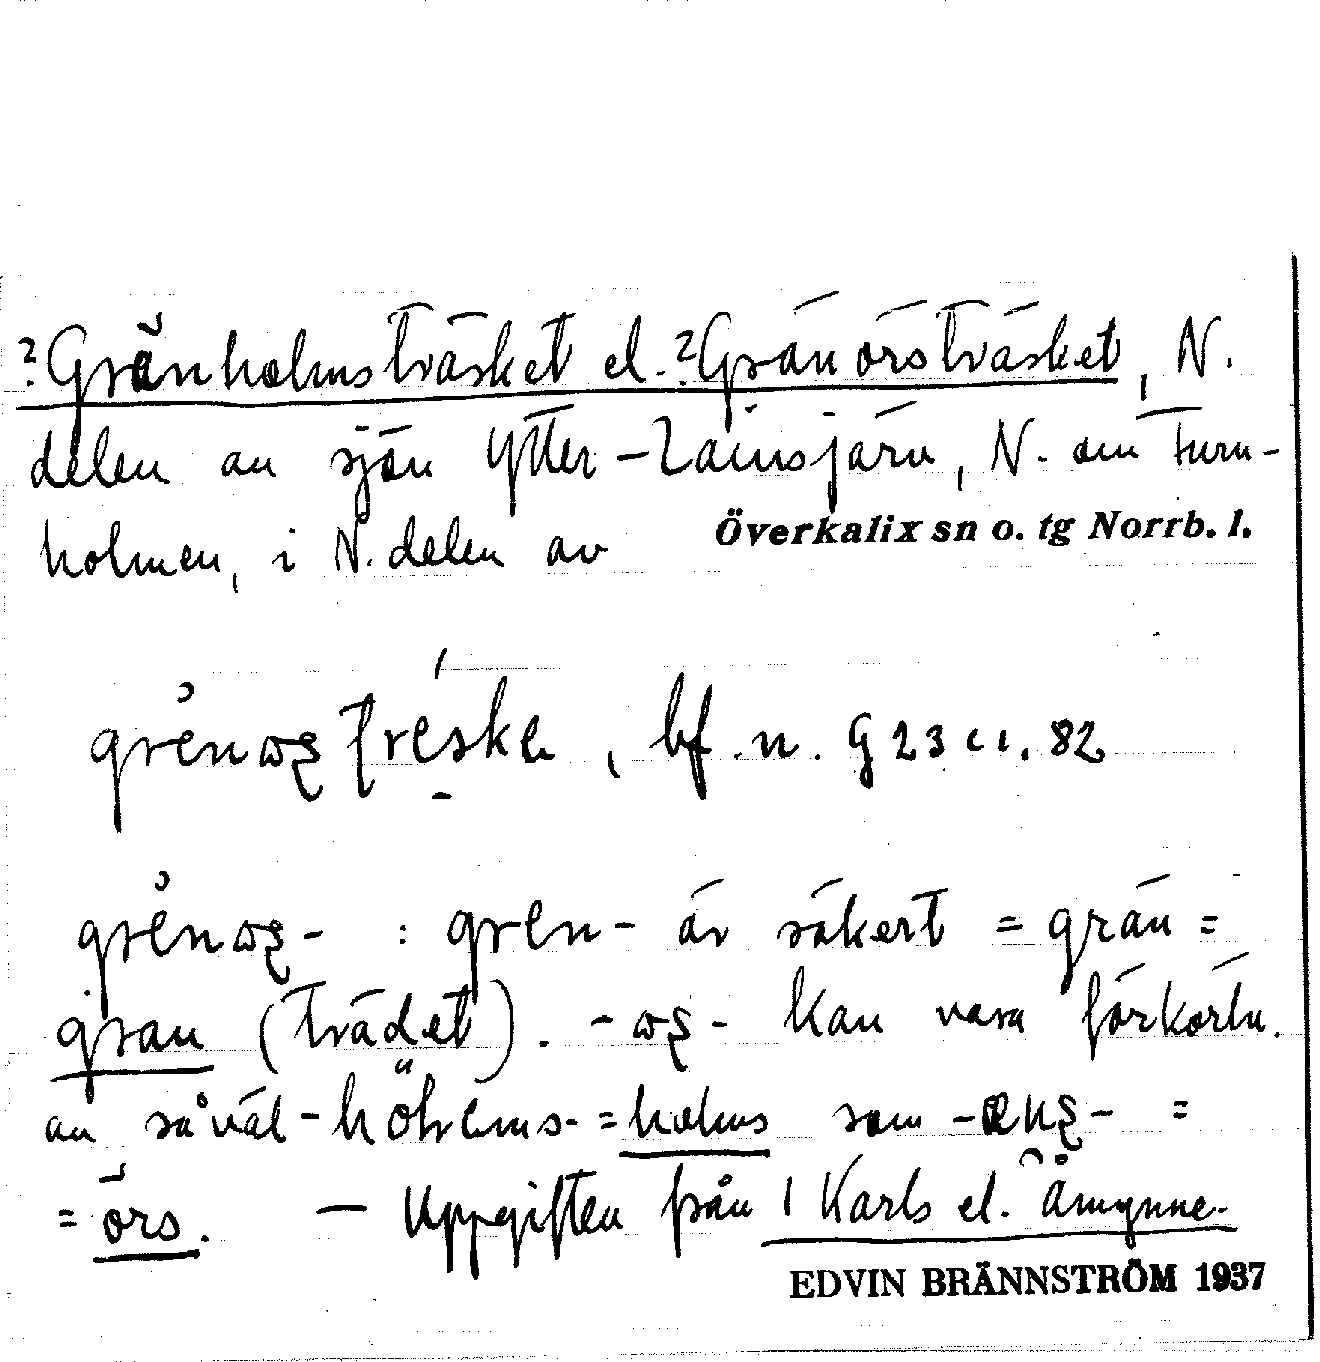 ?Gränholmsträsket el. ?Gränörsträsket, N.
delen av sjön Ytter-Lainsjärv, N. om Furu-
holmen, i N. delen av Överkalix sn o. tg Norrb. l.
bf. n. G 23 c 1. 82
: gren- är säkert = grän =
gran (trädet). kan vara förkortn.
av såväl = holms som =
= örs. — Uppgiften från 1 Karls el. Åmynne.
EDVIN BRÄNNSTRÖM 1937